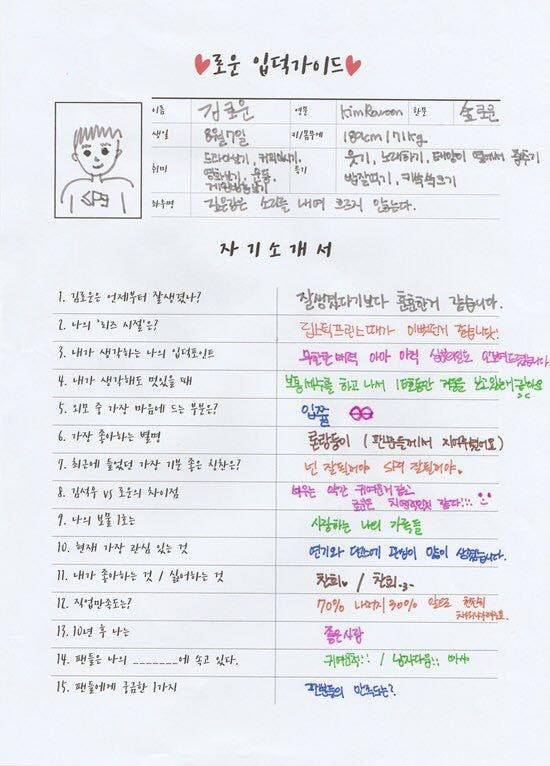 로운 입덕가이드
이름 김로운 영문 kimRowoon 한문 金로운
생일 8월 7일 키/몸무게 189cm / 71kg
취미 드라마보기, 커피마시기, 영화보기, 운동, 게임방송보기
특기 웃기, 노래하기, 태양이 옆에서 춤추기, 밥잘먹기, 키쑥쑥크기
좌우명 깊은강은 소리를 내며 흐르지 않는다.
자기소개서
1. 김로운은 언제부터 잘생겼나? 잘생겼다기보다 훈훈한거 같습니다.
2. 나의 '리즈 시절'은? 립스틱프린스때가 이뻤던거 같습니다!
3. 내가 생각하는 나의 입덕포인트 무한한 매력
4. 내가 생각해도 멋있을 때 보통 세수를 하고 나서 10초동안 거울을 보고
5. 외모 중 가장 마음에 드는 부분은? 입술
6. 가장 좋아하는 별명 로랑둥이 (팬분들께서 지어주셨어요)
7. 최근에 들었던 가장 기분 좋은 칭찬은? 넌 잘될거야 SF9 잘될거야
8. 김석우 vs 로운의 차이점 석우는 약간 귀여운거 같고 로운은
9. 나의 보물 1호는 사랑하는 나의 가족들
10. 현재 가장 관심 있는 것 연기와 댄스에 관심이 많이 생겼습니다.
11. 내가 좋아하는 것 / 싫어하는 것 찬희 / 찬희
12. 직업만족도는? 70% 나머지 30% 앞으로 천천히
13. 10년 후 나는 좋은사람
14. 팬들은 나의 _______에 속고 있다. 귀여움 / 남자다움
15. 팬들에게 궁금한 1가지 팬분들의 만족도는?